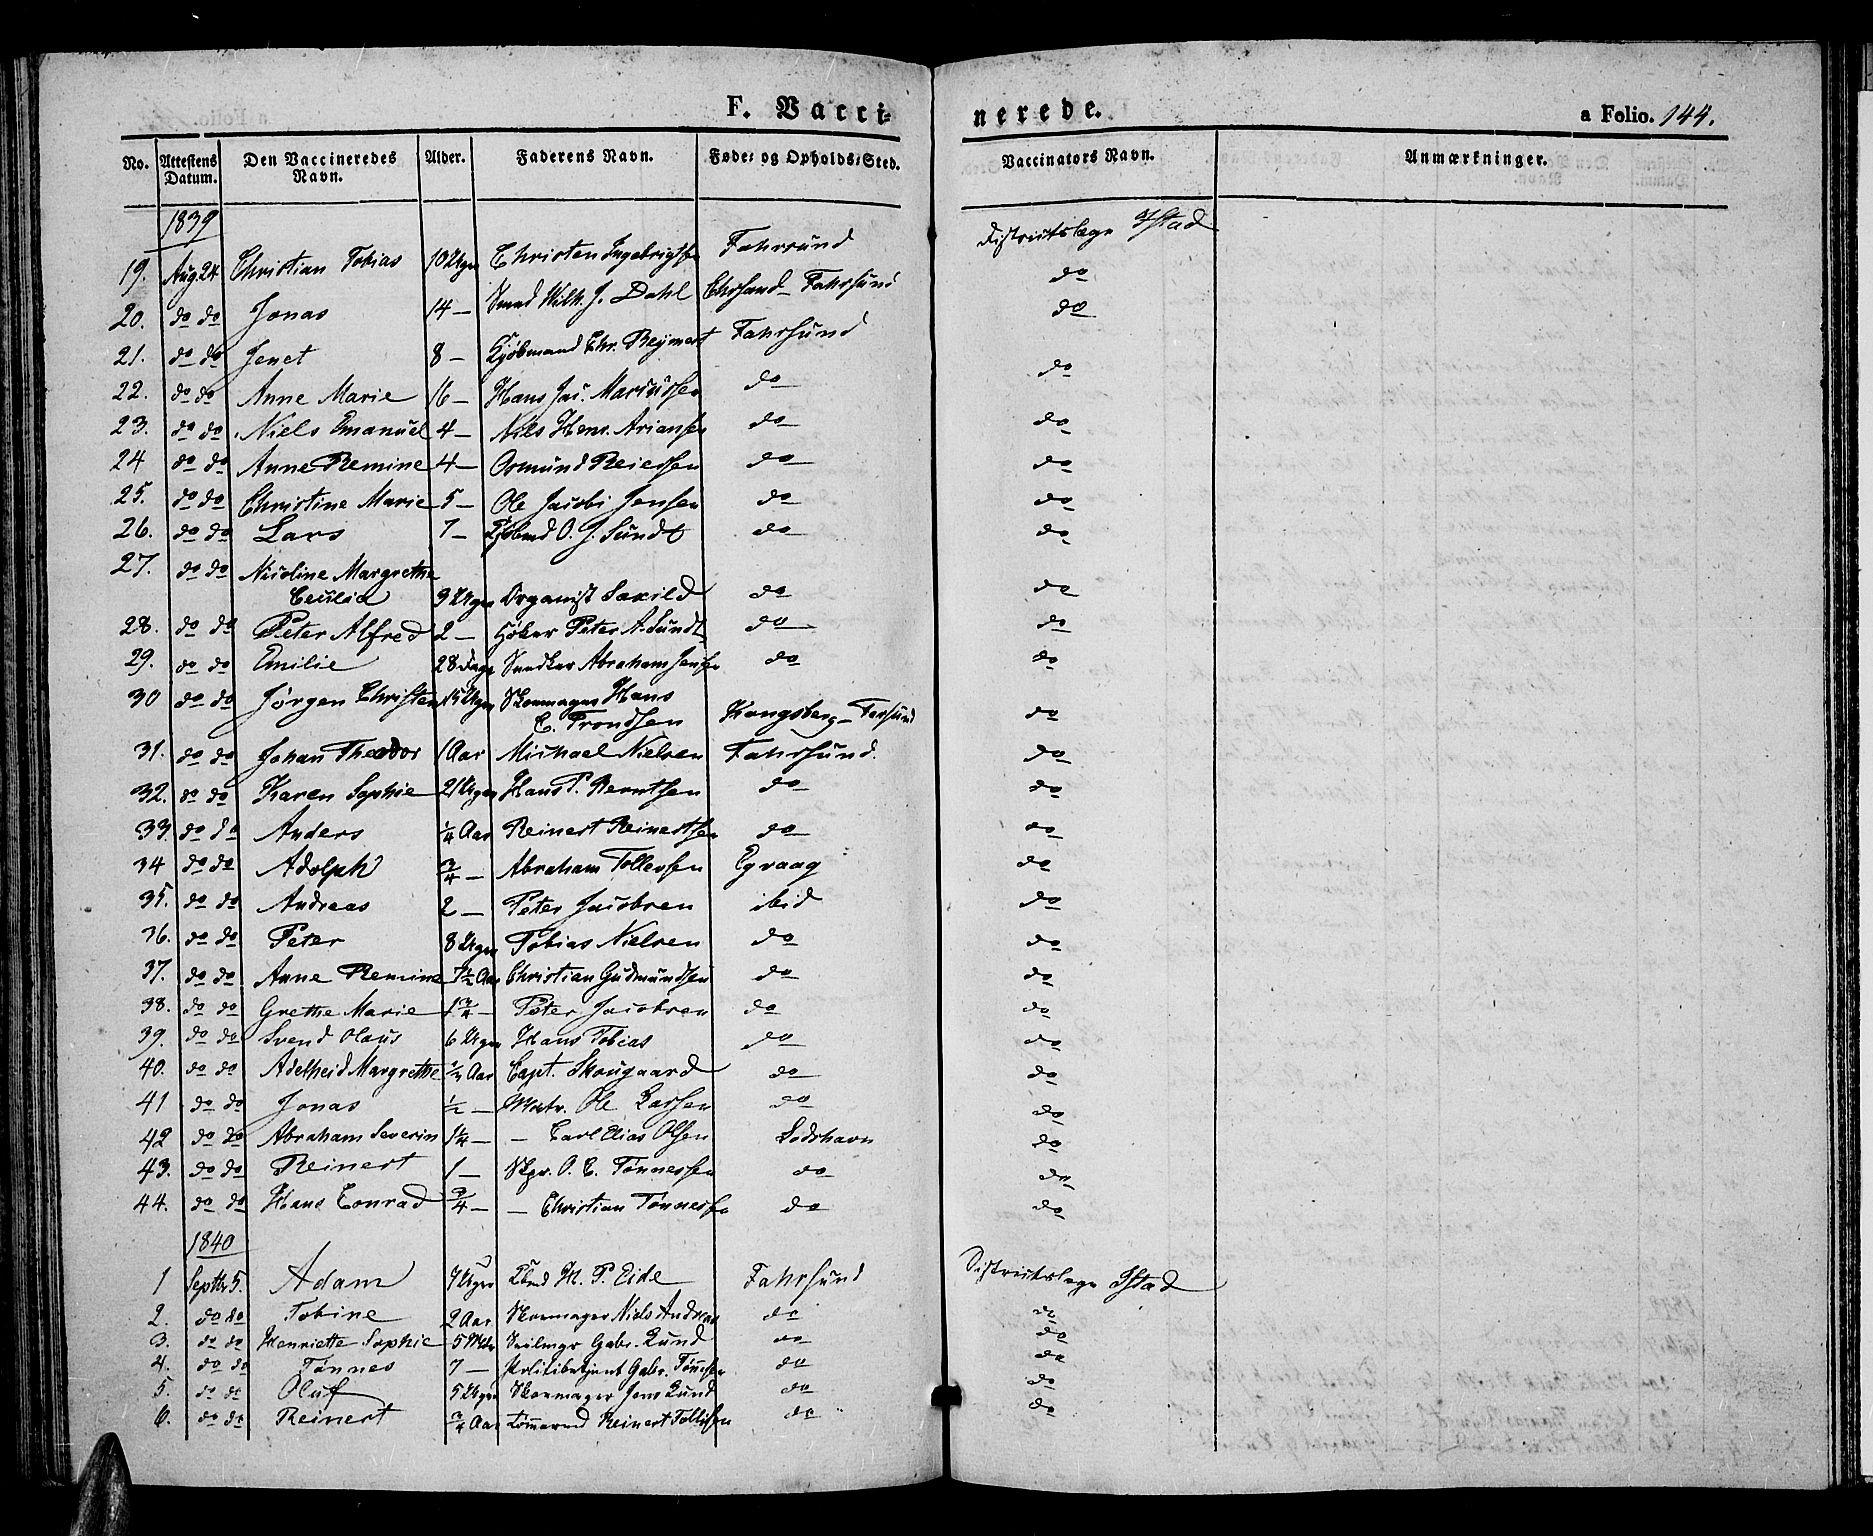 F. Vacci-
nerede.
a Folio. 144.
No. Attestens Datum. Den Vaccineredes Navn. Alder. Faderens Navn. Føde- og Opholds-Sted. Vaccinators Navn. Anmærkninger.
1839
19. Aug. 24 Christian Tobias 10 Uger Christen Ingebrigtsen Fahrsund Districtslæge Ystad
20. do do Jonas 14 — Smed Wilh. J. Dahl Chrsand - Fahrsund do
21. do do Jenet 8 — Kjøbmand Chr. Reymert Fahrsund do
22. do do Anne Marie 16 — Hans Jac. Marcussen do do
23. do do Niels Emanuel 4 — Nils Henr. Ariansen do do
24 do do Anne Remine 4 — Osmund Reiersen do do
25. do do Christine Marie 5 — Ole Jacobi Jensen do do
26. do do Lars 7 — Kjøbmd O. J. Sundt do do
27. do do Nicoline Margrethe
Cecilia 9 Uger Organist Saxild do do
28. do do Peter Alfred 2 — Høker Peter A. Sundt do do
29. do do Emilie 28 Dage Snedker Abraham Jensen do do
30 do do Jørgen Christen 15 Uger Skomager Hans
C. Trondsen Kongsberg - Farsund do
31. do do Johan Theodor 1 Aar Michael Nielsen Fahrsund. do
32. do do Karen Sophie 21 Uger Hans P. Berntsen do do
33. do do Anders ¼ Aar Reinert Reinertsen do do
34 do do Adolph ¾ — Abraham Tollevsen Egvaag do
35. do do Andreas 2 — Peter Jacobsen ibid do
36. do do Peter 8 Uger Tobias Nielsen do do
37. do do Anne Remine 7½ Aar Christian Gudmundsen do do
38. do do Grethe Marie 1¾ — Peter Jacobsen do do
39. do do Svend Olaus 6 Uger Hans Tobias do do
40. do do Adelheid Margrethe ½ Aar Capt. Skougaard do do
41 do do Jonas ½ — Matr. Ole Larsen do do
42 do do Abraham Severin 1¼ — — Carl Elias Olsen Loshavn do
43. do do Reinert 1 — Skpr. O. C. Tønnessen do do
44. do do Hans Conrad ¾ — — Christian Tønnessen do do
1840
1 Septbr 5. Adam 7 Uger Kbmd H. P. Eide Fahrsund Districtslæge Ystad
2. do do Tobine 2 Aar Skomager Niels Andreas do do
3. do do Henriette Sophie 5 Mdr Seilmgr Gabr. Lund do do
4. do do Tønnes 7 — Politibetjent Gabr. Tønnesen do do
5. do do Oluf 5 Uger Skomager Jens Lund do do
6. do do Reinert ¾ Aar Tømmermd Reinert Tollisen do do